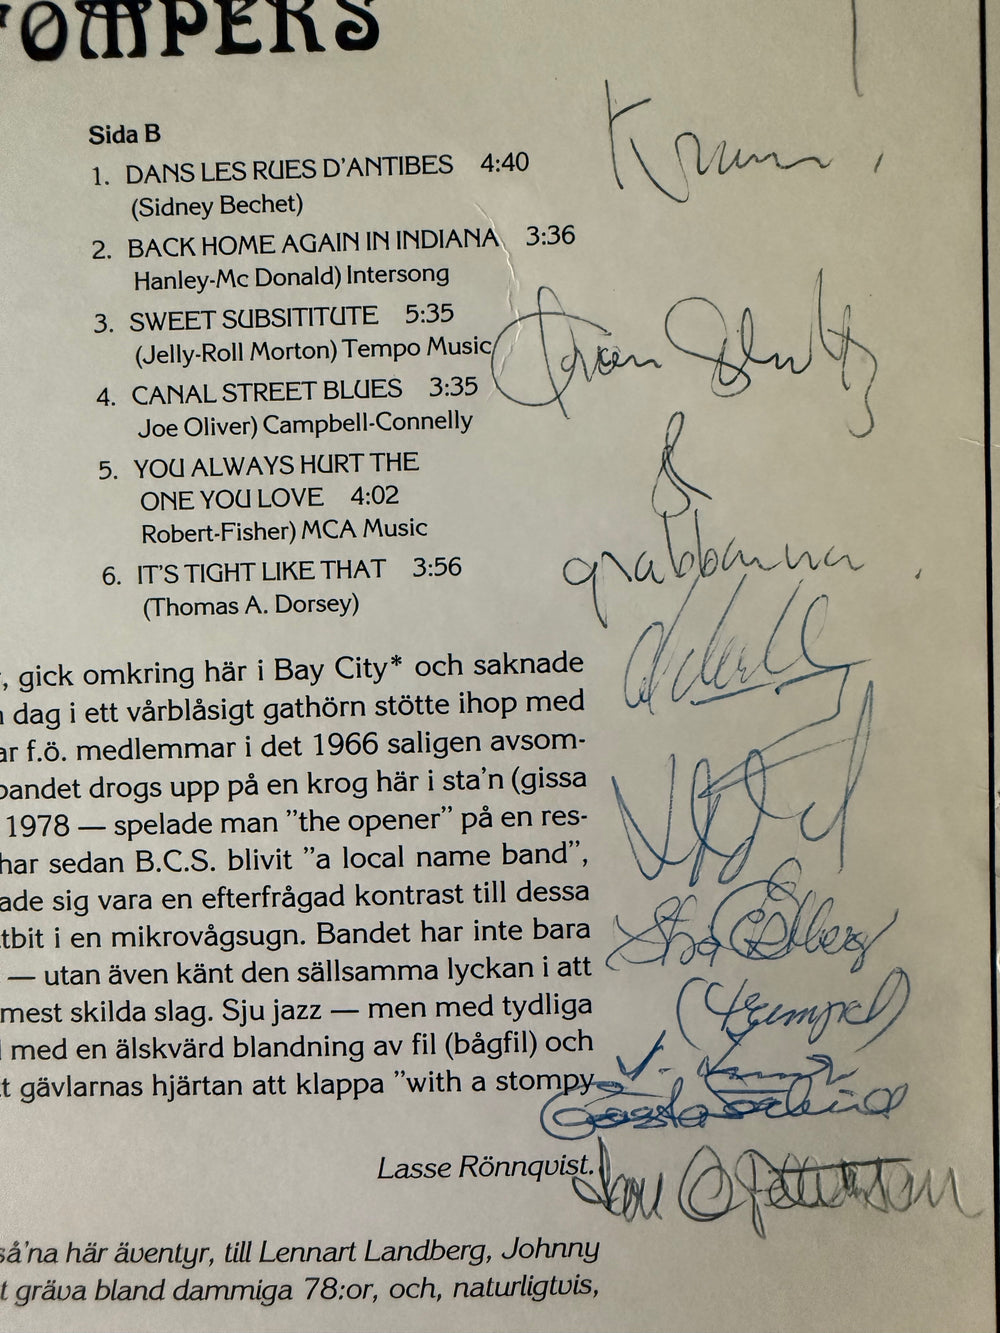 TOMPERS
Sida B
1. DANS LES RUES D'ANTIBES 4:40
(Sidney Bechet)
2. BACK HOME AGAIN IN INDIANA 3:36
Hanley-Mc Donald) Intersong
3. SWEET SUBSITITUTE 5:35
(Jelly-Roll Morton) Tempo Music
4. CANAL STREET BLUES 3:35
Joe Oliver) Campbell-Connelly
5. YOU ALWAYS HURT THE
ONE YOU LOVE 4:02
Robert-Fisher) MCA Music
6. IT'S TIGHT LIKE THAT 3:56
(Thomas A. Dorsey)
&
grabbarna
, gick omkring här i Bay City* och saknade
dag i ett vårblåsigt gathörn stötte ihop med
ar f.ö. medlemmar i det 1966 saligen avsom-
bandet drogs upp på en krog här i sta'n (gissa
1978 — spelade man "the opener" på en res-
har sedan B.C.S. blivit "a local name band",
ade sig vara en efterfrågad kontrast till dessa
tbit i en mikrovågsugn. Bandet har inte bara
— utan även känt den sällsamma lyckan i att
mest skilda slag. Sju jazz — men med tydliga
med en älskvärd blandning av fil (bågfil) och
t gävlarnas hjärtan att klappa "with a stompy
Lasse Rönnqvist.
Jan O Pettersson
så'na här äventyr, till Lennart Landberg, Johnny
t gräva bland dammiga 78:or, och, naturligtvis,